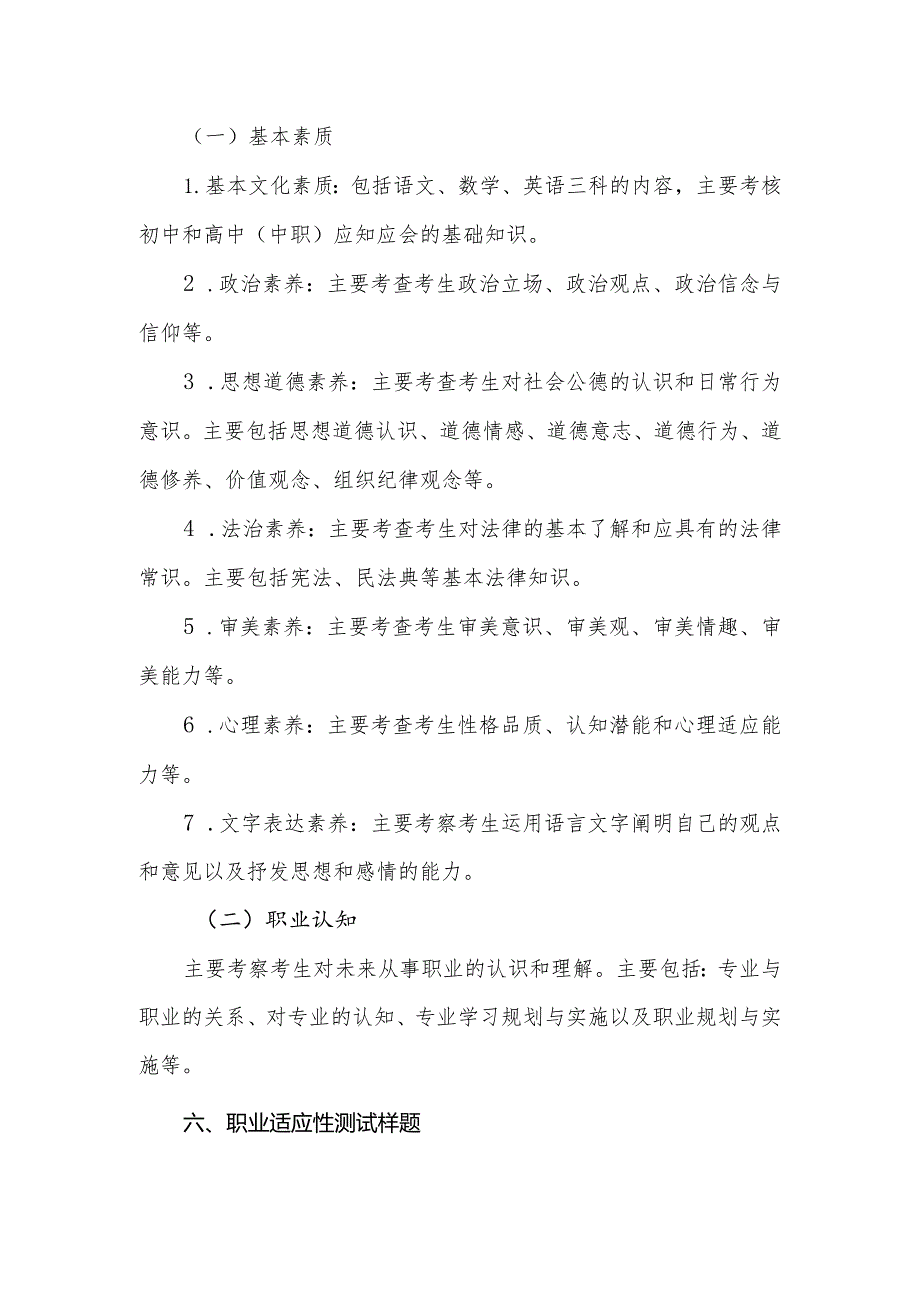 （一）基本素质
1.基本文化素质：包括语文、数学、英语三科的内容，主要考核
初中和高中（中职）应知应会的基础知识。
2 .政治素养：主要考查考生政治立场、政治观点、政治信念与
信仰等。
3 .思想道德素养：主要考查考生对社会公德的认识和日常行为
意识。主要包括思想道德认识、道德情感、道德意志、道德行为、道
德修养、价值观念、组织纪律观念等。
4 .法治素养：主要考查考生对法律的基本了解和应具有的法律
常识。主要包括宪法、民法典等基本法律知识。
5 .审美素养：主要考查考生审美意识、审美观、审美情趣、审
美能力等。
6 .心理素养：主要考查考生性格品质、认知潜能和心理适应能
力等。
7 .文字表达素养：主要考察考生运用语言文字阐明自己的观点
和意见以及抒发思想和感情的能力。
（二）职业认知
主要考察考生对未来从事职业的认识和理解。主要包括：专业与
职业的关系、对专业的认知、专业学习规划与实施以及职业规划与实
施等。
六、职业适应性测试样题